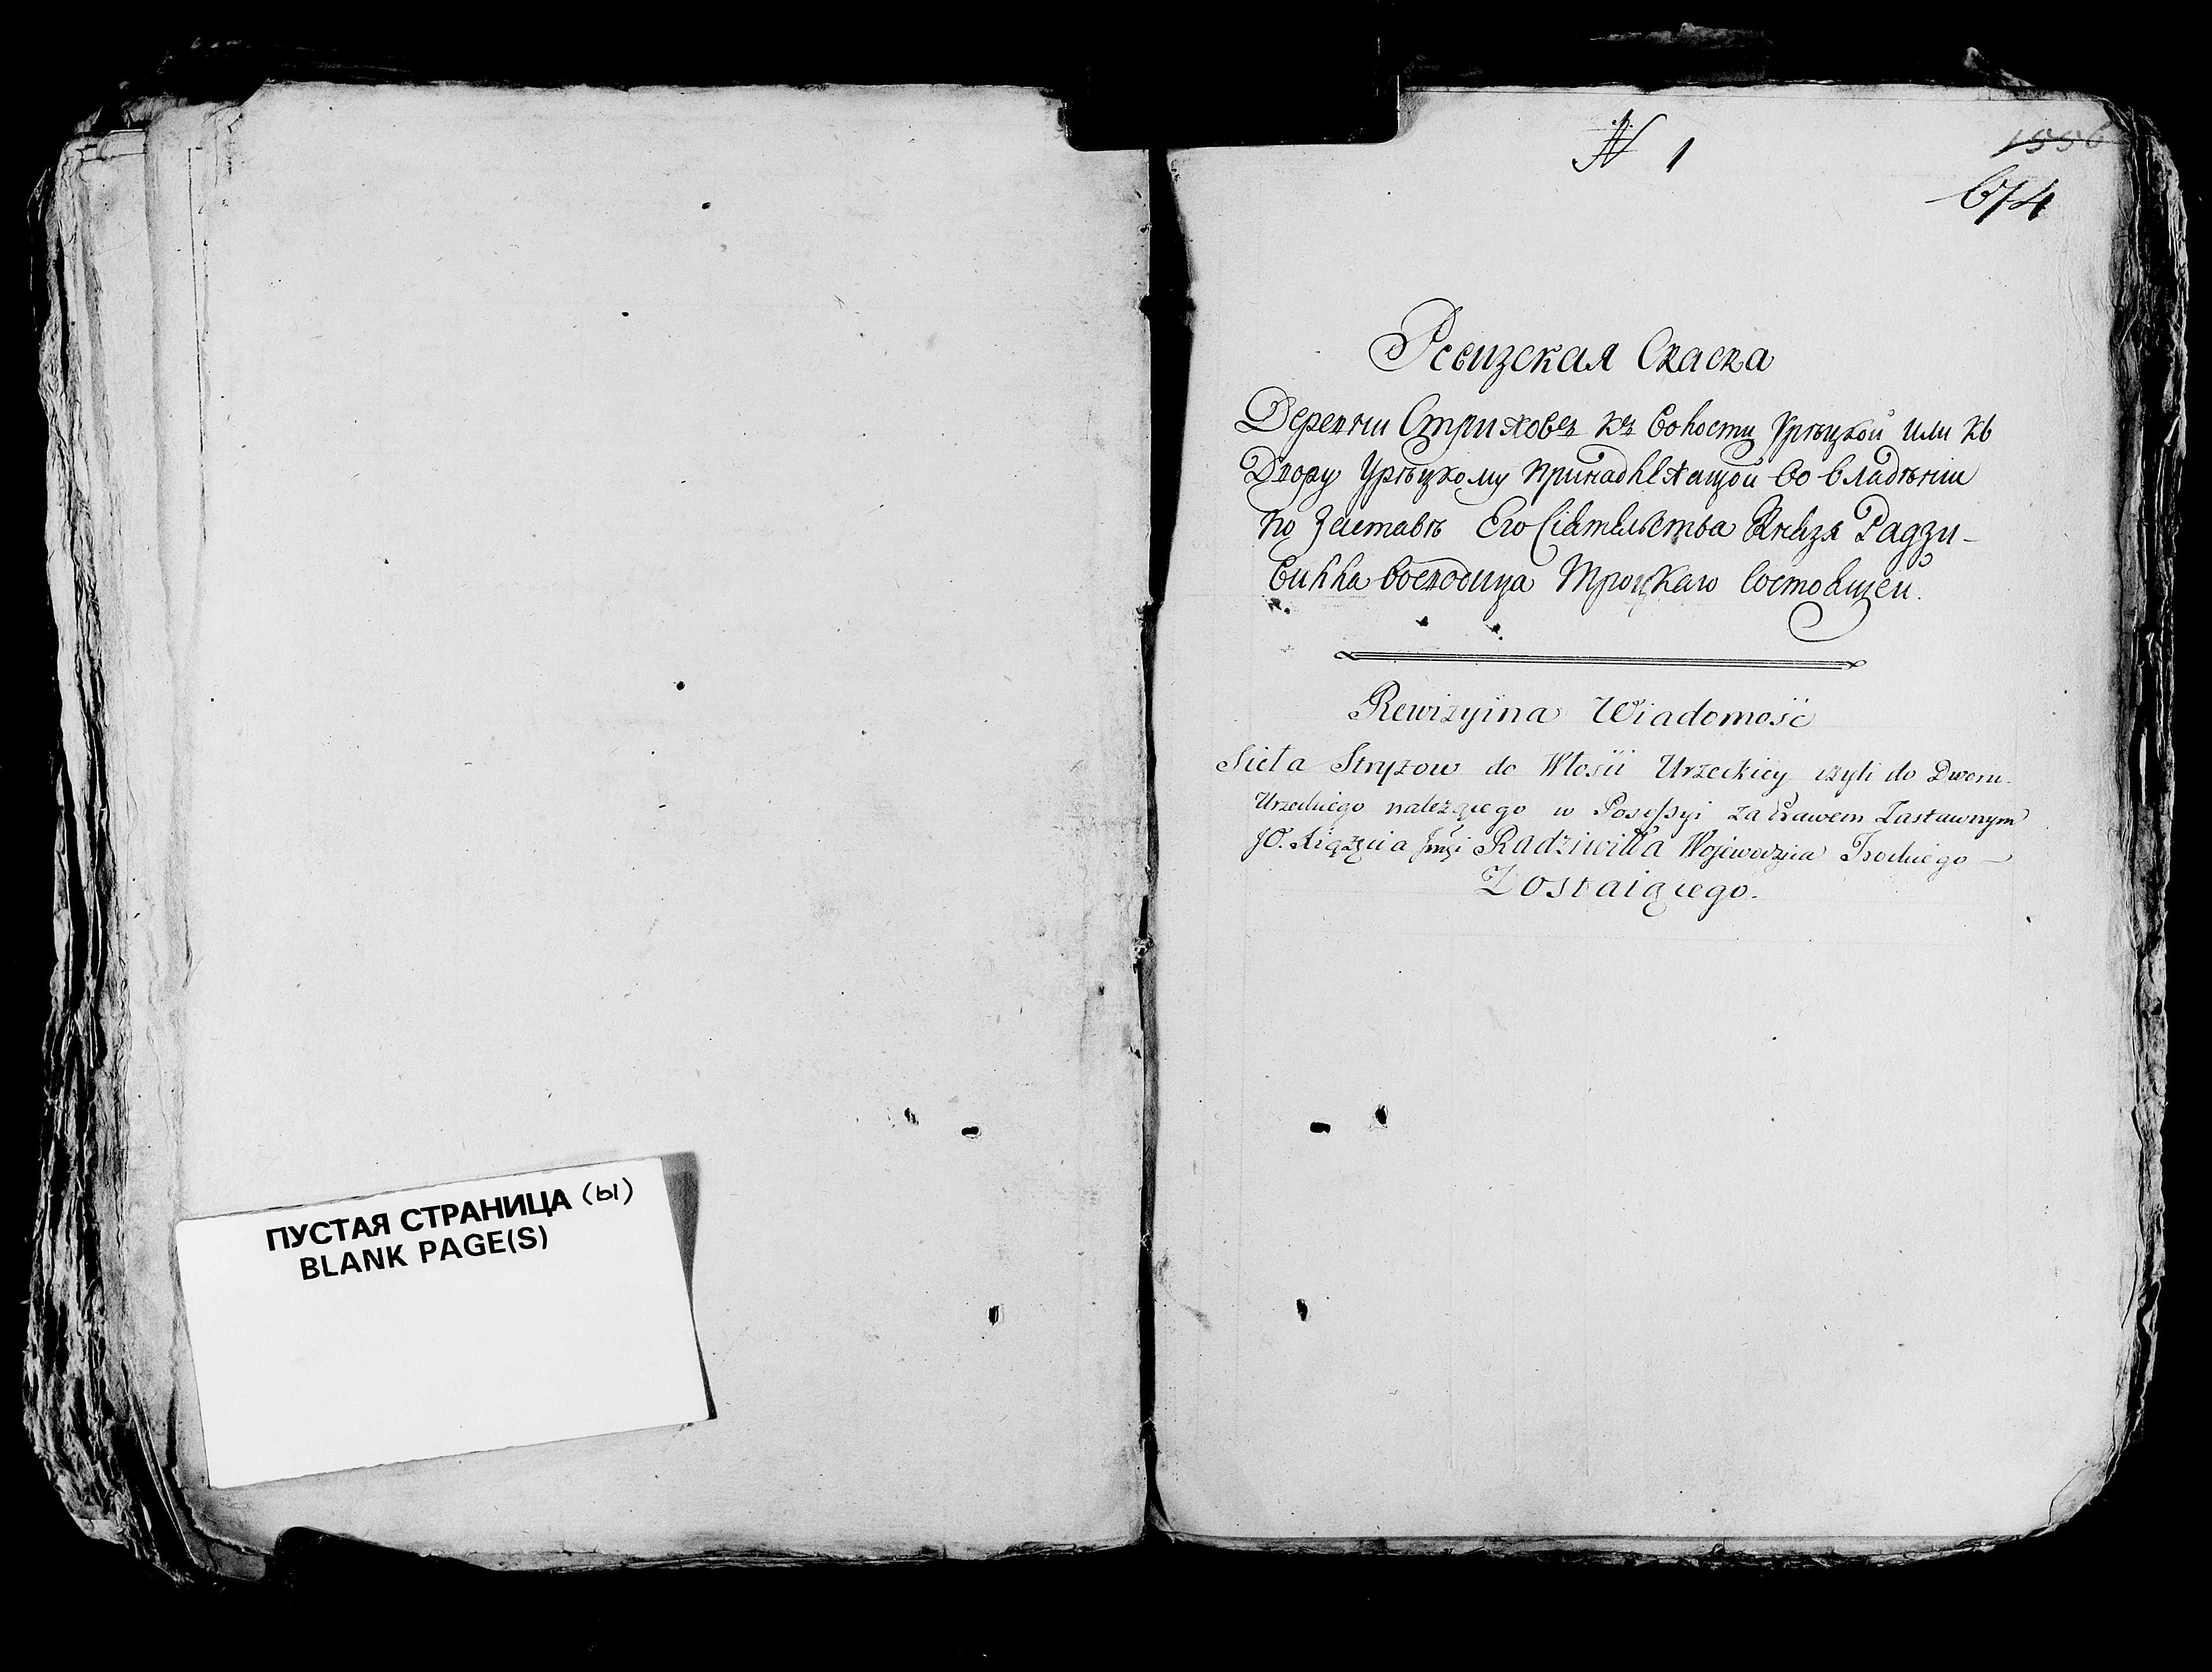 ПУСТАЯ СТРАНИЦА (ы)
BLANK PAGE(S)
№ 1
1556
674
Ревизская Скаска
Деревни Стрижовъ къ Волости Урѣцкой или къ
Двору Урѣцкому принадлежащой во владѣнии
по Заставѣ Его Сіятельства Князя Радзи-
вилла воеводица Троцкаго состоящей.
Rewizyina Wiadomość
Sieła Stryżow do Włości Urzeckiey czyli do Dworu
Urzeckiego należącego w Possessyi za Prawem Zastawnym
JO. Xiążęcia Radziwiłła Wojewodzica Trockiego —
Zostaiącego.